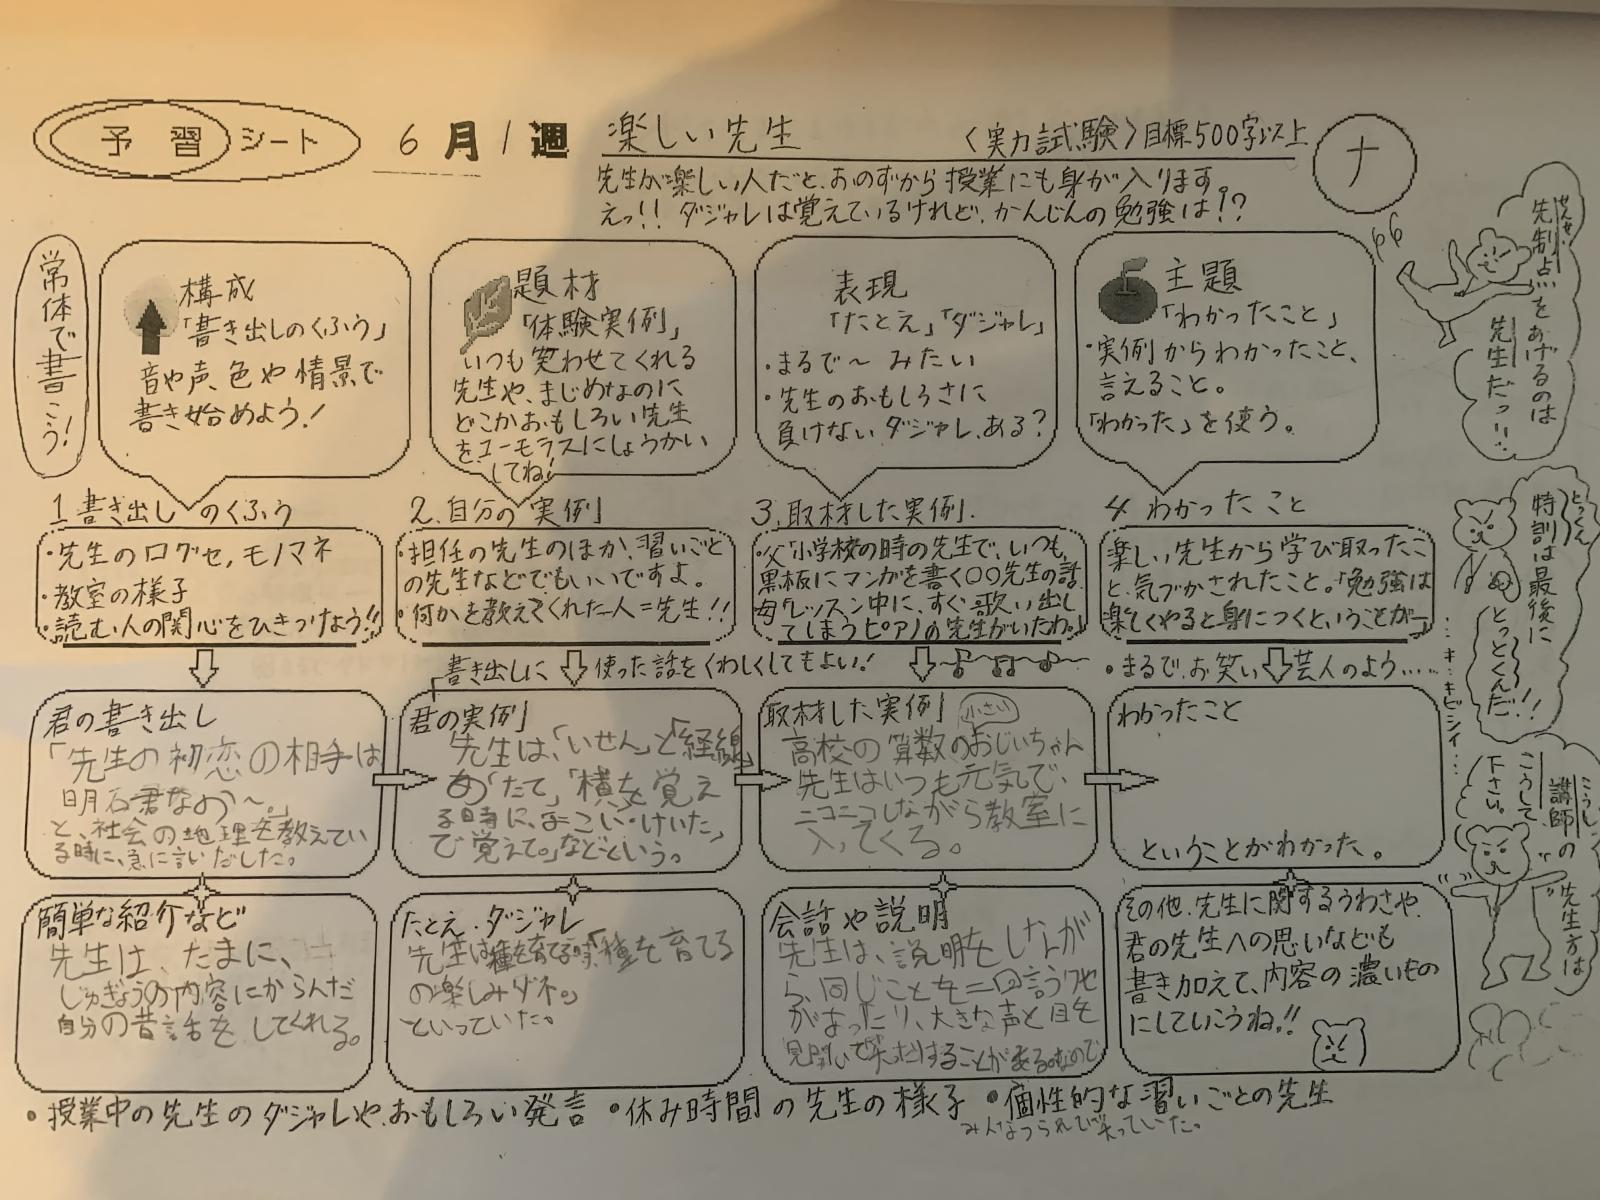 予習シート
6月1週
楽しい先生
〈実力試験〉目標500字以上
ナ
先生が楽しい人だと、おのずから授業にも身が入ります。
えっ!! ダジャレは覚えているけれど、かんじんの勉強は!?
常体で書こう!
構成
「書き出しのくふう」
音や声、色や情景で
書き始めよう!
題材
「体験実例」
いつも笑わせてくれる
先生や、まじめなのに
どこかおもしろい先生
をユーモラスにしょうかい
してね!
表現
「たとえ」「ダジャレ」
・まるで〜みたい
・先生のおもしろさに
負けないダジャレ、ある?
主題
「わかったこと」
・実例からわかったこと、
言えること。
「わかった」を使う。
せんせい
先制点をあげるのは
先生だっ!!
1 書き出しのくふう
・先生の口グセ,モノマネ
・教室の様子
・読む人の関心をひきつけよう!!
2.自分の実例」
・担任の先生のほか、習いごと
の先生などでもいいですよ。
・何かを教えてくれた人=先生!!
3.取材した実例.
・父「小学校の時の先生で、いつも、
黒板にマンガを書く〇〇先生の話
母「レッスン中に、すぐ歌い出し
てしまうピアノの先生がいたわ。」
4 わかったこと
楽しい先生から学び取ったこ
と、気づかされたこと。「勉強は
楽しくやると身につくということが―
とっくん
特訓は最後に
とっとくんだ!!
…キ…キビシイ…
書き出しに使った話をくわしくしてもよい!
・まるで、お笑い芸人のよう……
君の書き出し
「先生の初恋の相手は
明石君なの〜。」
と、社会の地理を教えてい
る時に、急に言いだした。
君の実例」
先生は、「いせん」と「経線」
の「たて」「横」を覚え
る時に、「よこい・けいた」
で覚えて。」などという。
取材した実例」
小さい
高校の算数のおじいちゃん
先生はいつも元気で、
ニコニコしながら教室に
入ってくる。
わかったこと
ということがわかった。
こうし
講師の先生方は
こうして
下さい。
簡単な紹介など
先生は、たまに、
じゅぎょうの内容にからんだ
自分の昔話をしてくれる。
たとえ・ダジャレ
先生は種を育てる時、「種を育てる
の楽しみダネ。」
といっていた。
会話や説明
先生は、説明をしながが
ら、同じことを二回言うクセ
があったり、大きな声と目を
見開いて
することがあるなので
その他、先生に関するうわさや、
君の先生への思いなども
書き加えて、内容の濃いもの
にしていこうね!!
・授業中の先生のダジャレや、おもしろい発言 ・休み時間の先生の様子 ・個性的な習いごとの先生
みんなつられて笑っていた。